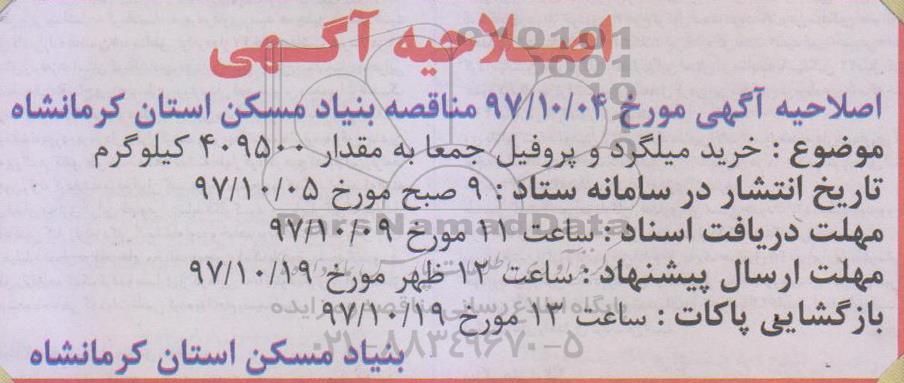 اصلاحیه آگهی
اصلاحیه آگهی مورخ ۹۷/۱۰/۰۴ مناقصه بنیاد مسکن استان کرمانشاه
موضوع : خرید میلگرد و پروفیل جمعا به مقدار ۴۰۹۵۰۰ کیلوگرم
تاریخ انتشار در سامانه ستاد : ۹ صبح مورخ ۹۷/۱۰/۰۵
مهلت دریافت اسناد : ساعت ۱۱ مورخ ۹۷/۱۰/۰۹
مهلت ارسال پیشنهاد : ساعت ۱۲ ظهر مورخ ۹۷/۱۰/۱۹
بازگشایی پاکات : ساعت ۱۳ مورخ ۹۷/۱۰/۱۹
بنیاد مسکن استان کرمانشاه
ParsNamadData
پایگاه اطلاع رسانی مناقصه و مزایده
۰۲۱-۸۸۳۴۹۶۷۰-۵